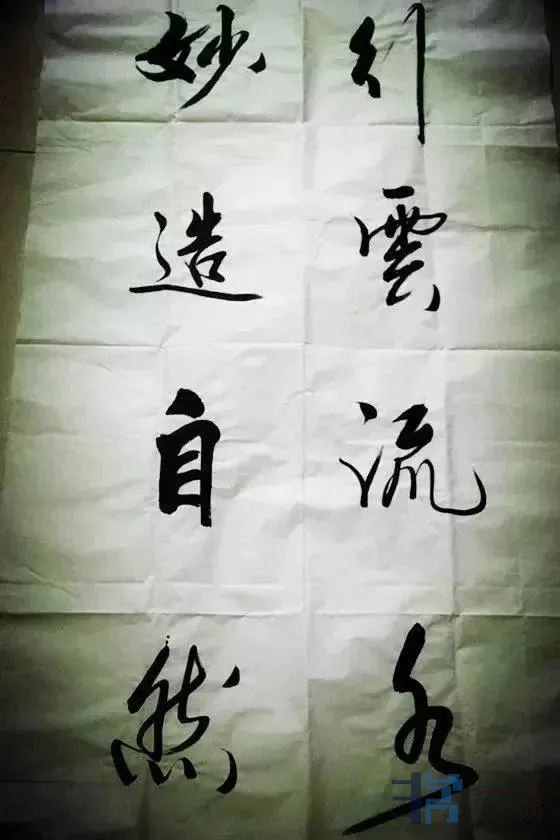 行雲流水
妙造自然